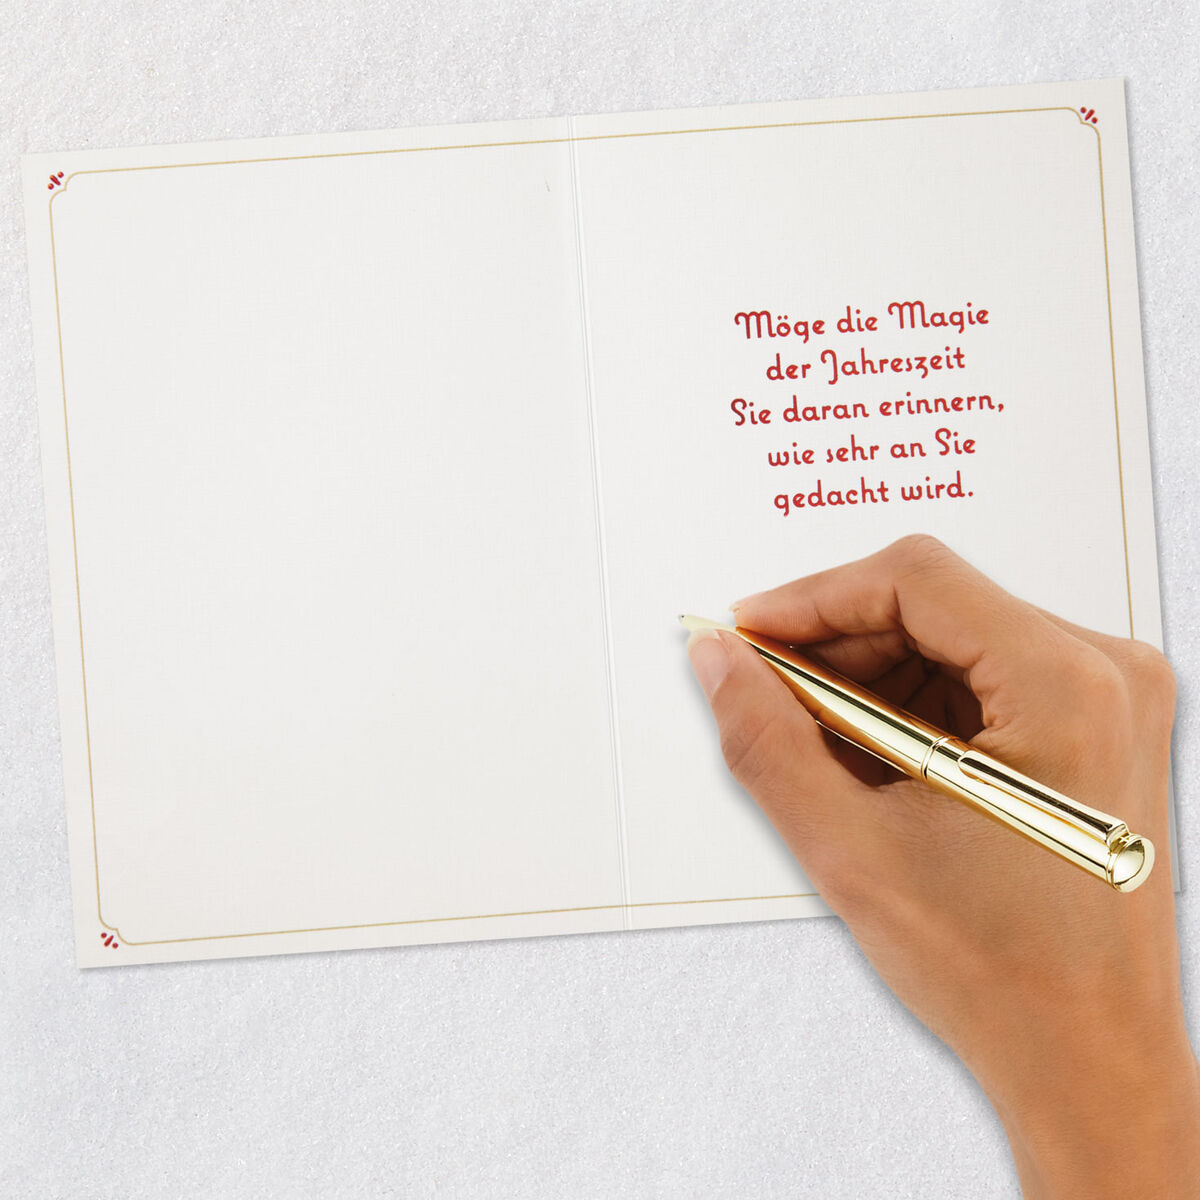 Möge die Magie
der Jahreszeit
Sie daran erinnern,
wie sehr an Sie
gedacht wird.